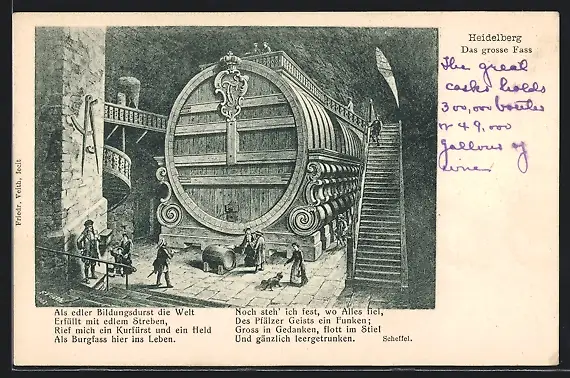 Heidelberg
Das grosse Fass
The great
casks holds
300,000 bottles
or 49,000
gallons of
wine
Friedr. Veith, fecit
Als edler Bildungsdurst die Welt
Erfüllt mit edlem Streben,
Rief mich ein Kurfürst und ein Held
Als Burgfass hier ins Leben.
Noch steh' ich fest, wo Alles fiel,
Des Pfälzer Geists ein Funken;
Gross in Gedanken, flott im Stiel
Und gänzlich leergetrunken.
Scheffel.